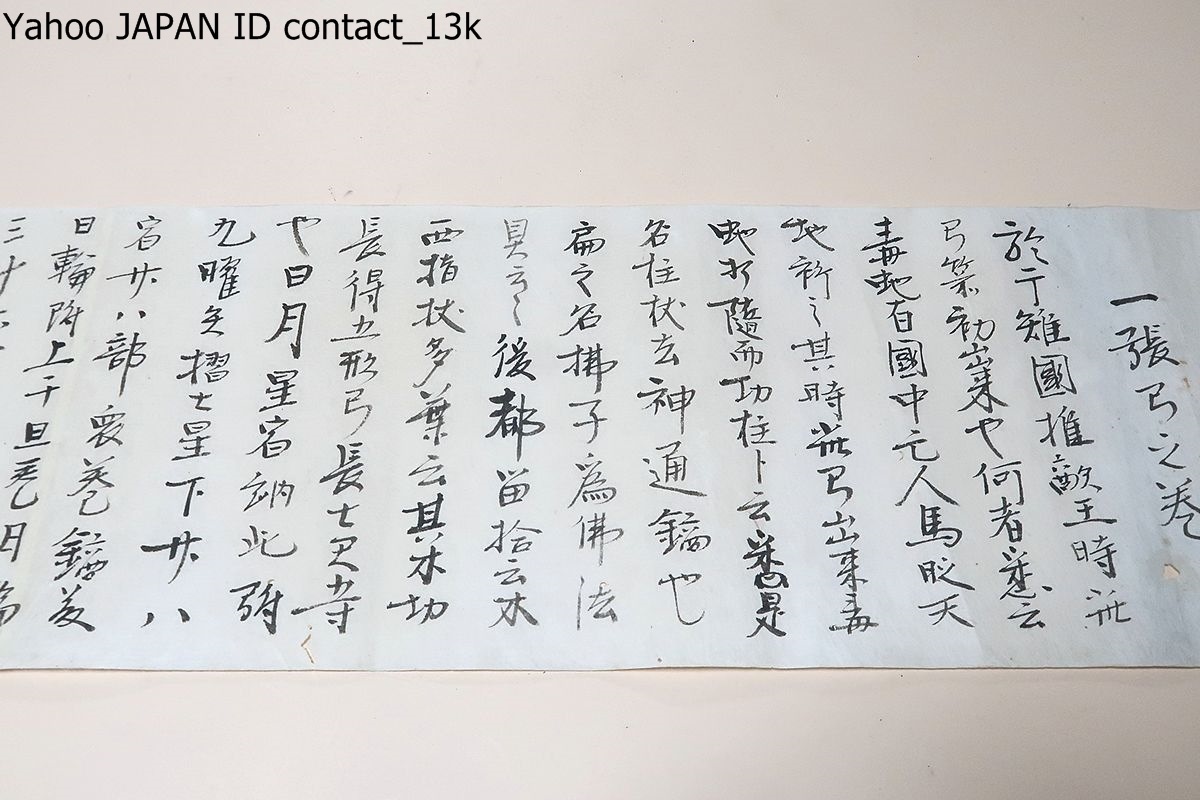 Yahoo JAPAN ID contact_13k
一張弓之巻
於于雉國推敵王時並
弓築初出来也何者悉云
毒虵有國中亡人馬
天
地祈之其時並弓出来毒
虵打随而切柱卜云
是
名柱杖云神通鏑也
扁之名拂子為佛法
具言之後都留拾云木
西指杖多葉云其木切
長得五形弓長七尺
寸
也日月星宿納此弭
九曜矢摺七星下廿八
宿廿八部衆巻鏑
日輪
上干旦巻月
三十六